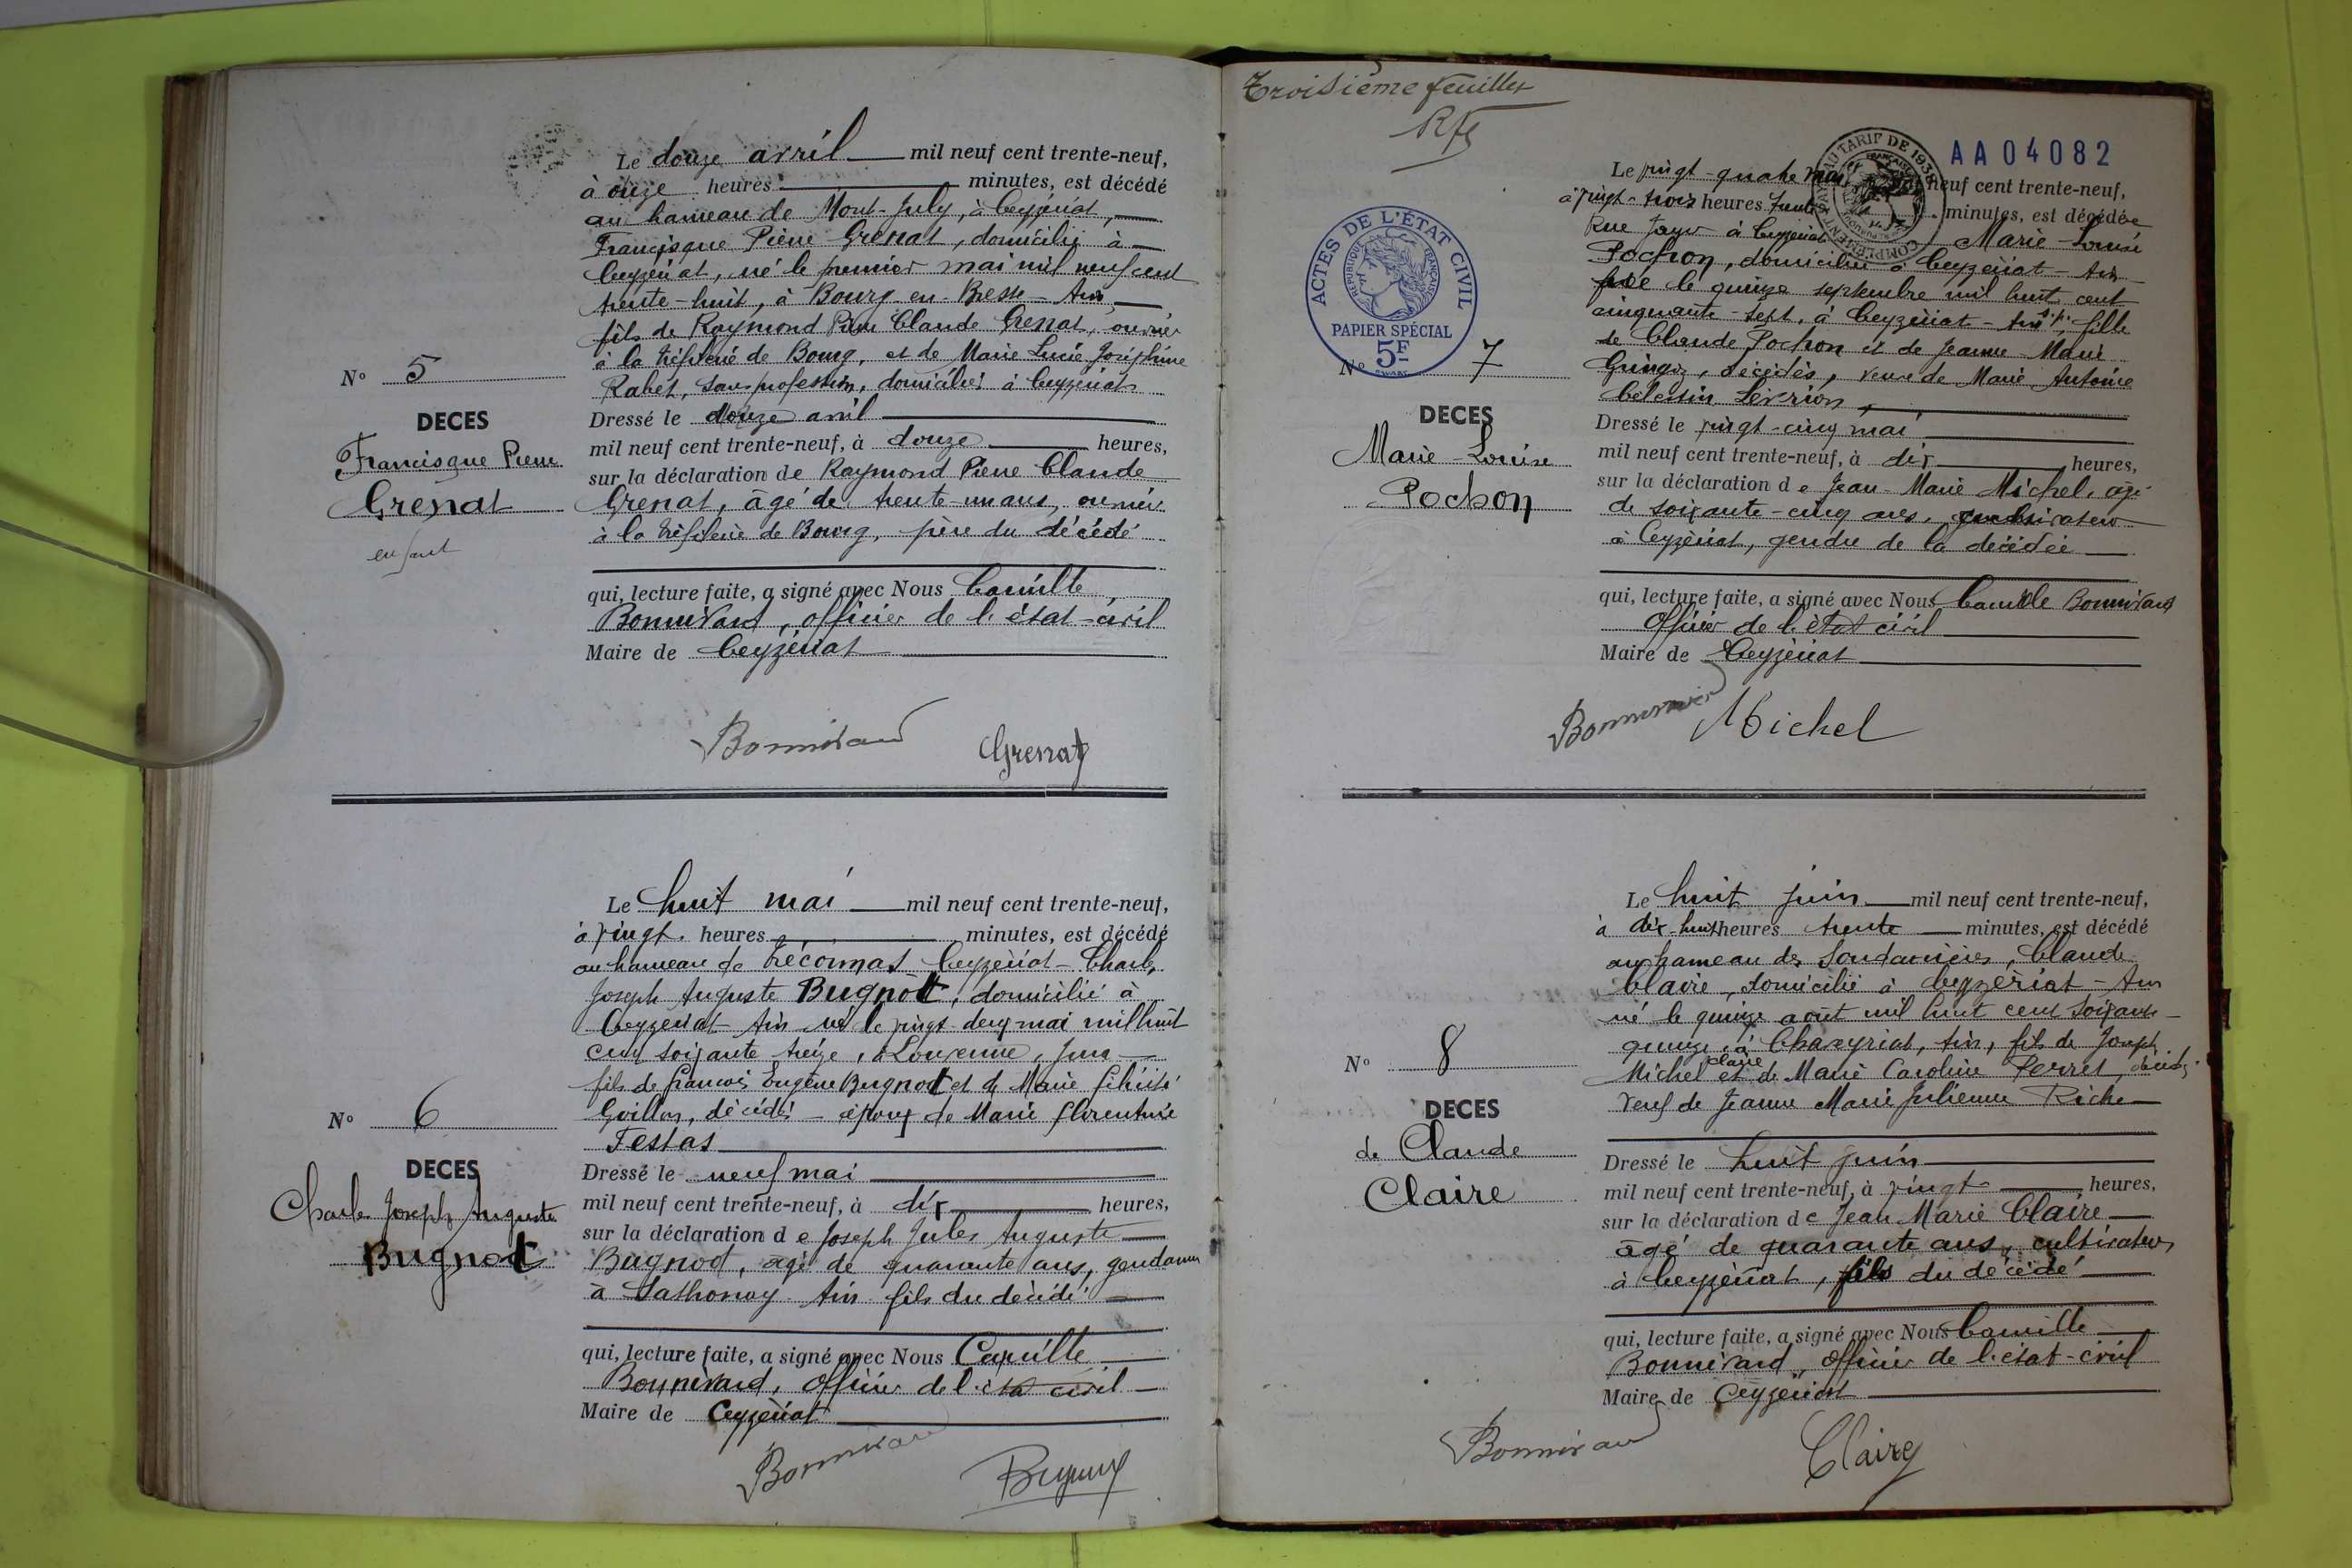 Le douze avril mil neuf cent trente-neuf,
à onze heures minutes, est décédé
au hameau de Mont-July, à Ceyzériat,
Francisque Pierre Grenat, domicilié à
Ceyzériat, né le premier mai mil neuf cent
trente-huit, à Bourg-en-Bresse - Ain,
fils de Raymond Pierre Claude Grenat, ouvrier
à la tréfilerie de Bourg, et de Marie Lucie Joséphine
Rabet, sans profession, domiciliés à Ceyzériat
N° 5
DECES
Francisque Pierre
Grenat
enfant
Dressé le douze avril
mil neuf cent trente-neuf, à douze heures,
sur la déclaration de Raymond Pierre Claude
Grenat, âgé de trente-un ans, ouvrier
à la tréfilerie de Bourg, père du décédé
qui, lecture faite, a signé avec Nous Camille
Bonnivard, officier de l'état-civil
Maire de Ceyzériat
Bonnivard Grenat
Le huit mai mil neuf cent trente-neuf,
à vingt heures minutes, est décédé
au hameau de Trécormas Ceyzériat - Charles
Joseph Auguste Bugnot, domicilié à
Ceyzériat Ain né le vingt-deux mai mil huit
cent soixante treize, à Louvenne, Jura
fils de François Eugène Bugnot et de Marie Félicité
Goillon, décédés - époux de Marie Florentine
Festas
N° 6
DECES
Charles Joseph Auguste
Bugnot
Dressé le neuf mai
mil neuf cent trente-neuf, à dix heures,
sur la déclaration de Joseph Jules Auguste
Bugnod, âgé de quarante ans, gendarme
à Sathonay - Ain fils du décédé
qui, lecture faite, a signé avec Nous Camille
Bonnivard, officier de l'état civil
Maire de Ceyzériat
Bonnivard
Troisième feuillet
AA04082
COMPLÉMENT AU TARIF DE 1938
ACTES DE L'ÉTAT CIVIL
RÉPUBLIQUE FRANÇAISE
PAPIER SPÉCIAL
5F
Le vingt-quatre mai mil neuf cent trente-neuf,
à vingt-trois heures trente minutes, est décédée
Rue à Ceyzériat Marie-Louise
Pochon, domiciliée à Ceyzériat - Ain
née le quinze septembre mil huit cent
cinquante-sept, à Ceyzériat - Ain, fille
de Claude Pochon et de Jeanne-Marie
Gringoz, décédés, veuve de Marie Antoine
Célestin Levrion,
N° 7
DECES
Marie-Louise
Pochon
Dressé le vingt-cinq mai
mil neuf cent trente-neuf, à dix heures,
sur la déclaration de Jean-Marie Michel, âgé
de soixante-cinq ans, cultivateur
à Ceyzériat, gendre de la décédée
qui, lecture faite, a signé avec Nous Camille Bonnivard
Officier de l'état civil
Maire de Ceyzériat
Bonnivard Michel
Le huit juin mil neuf cent trente-neuf,
à dix-huit heures trente minutes, est décédé
au hameau des Soudanières, Claude
Claire, domicilié à Ceyzériat - Ain
né le quinze août mil huit cent soixante-
quinze, à Chaveyriat, Ain, fils de Joseph
Michel Claire et de Marie Caroline Perret, décédés,
veuf de Jeanne Marie Julienne Riche
N° 8
DECES
de Claude
Claire
Dressé le huit juin
mil neuf cent trente-neuf, à vingt heures,
sur la déclaration de Jean Marie Claire
âgé de quarante ans, cultivateur
à Ceyzériat, fils du décédé
qui, lecture faite, a signé avec Nous Camille
Bonnivard, officier de l'état-civil
Maire de Ceyzériat
Bonnivard Claire